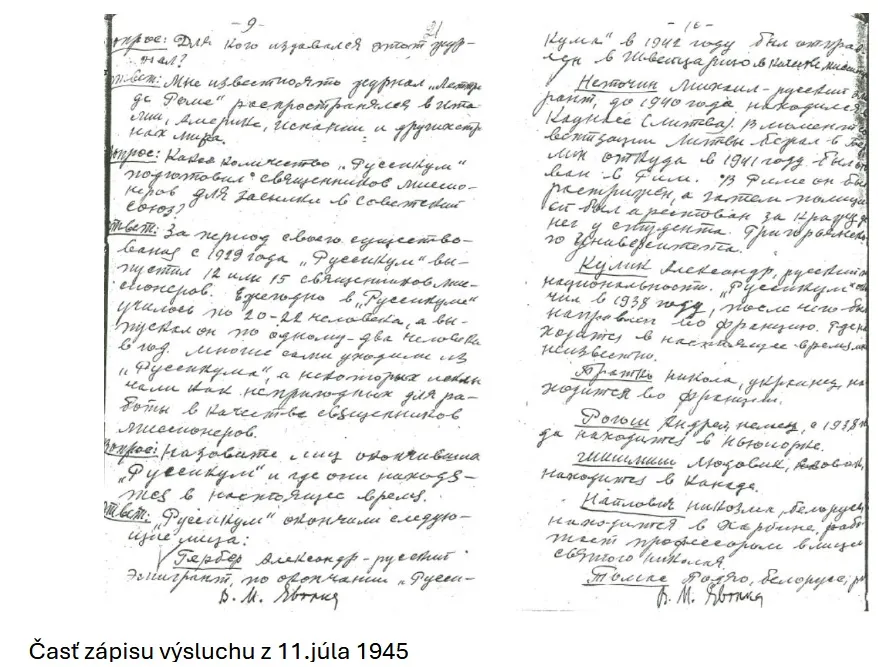 - 9 -
21
опрос: Для кого издавался этот жур-
нал?
твет: Мне известно что журнал „
да Роме" распространялся в Ита-
лии, Америке, Испании и других стр
нах мира.
опрос: Какое количество „Руссикум"
подготовил священников миссио-
неров для засылки в Советский
союз?
твет: За период своего существо-
вания с 1929 года „Руссикум" вы-
пустил 12 или 15 священников ми-
сионеров. Ежегодно в „Руссикуме"
училось по 20-22 человека, а вы-
пускал он по одному-два человека
в год. Многие сами уходили из
„Руссикума", а некоторых исклю
чали как непригодных для ра-
боты в качестве священников
миссионеров.
Вопрос: Назовите лиц окончивших
„Руссикум" и где они находя-
тся в настоящее время.
твет: „Руссикум" окончили следую-
щие лица:
Гербер Александр - русский
эмигрант, по окончании „Русси-
В. М.
- 10 -
кума" в 1942 году был отправ
лен в Швейцарию в качестве
Неточин Михаил - русский
грант, до 1940 года находился
Каунасе (Литва). В момент со
ветизации Литвы бежал в
лин откуда в 1941 году был
ван в Рим. В Риме он был
а затем
был арестован за кражу
нег у студента Григорианско
го Университета.
Кулик Александр, русский
национальности. „Руссикум"
чил в 1938 году, после чего был
направлен во Францию. Где
ходится в настоящее время
неизвестно.
Братко Никола, украинец, на
ходится во Франции.
Рогош Андрей, немец, с 1938
да находится в Нюиорке.
Людовик,
находится в Канаде.
белорус
находится в Харбине, рабо
тает профессором в лице
святого Николая.
Томас белорус,
В. М.
Časť zápisu výsluchu z 11.júla 1945